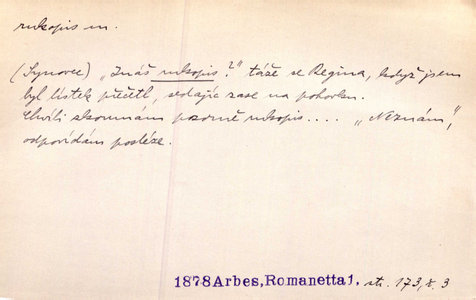 rukopis m.
(Synovec) „Znáš rukopis?" táže se Regina, když jsem
byl lístek přečetl, sedajíc zase na pohovku.
Chvíli zkoumám pozorně rukopis.... „Neznám",
odpovídám posléze.
1878 Arbes, Romanetta 1, str. 173, ř. 3